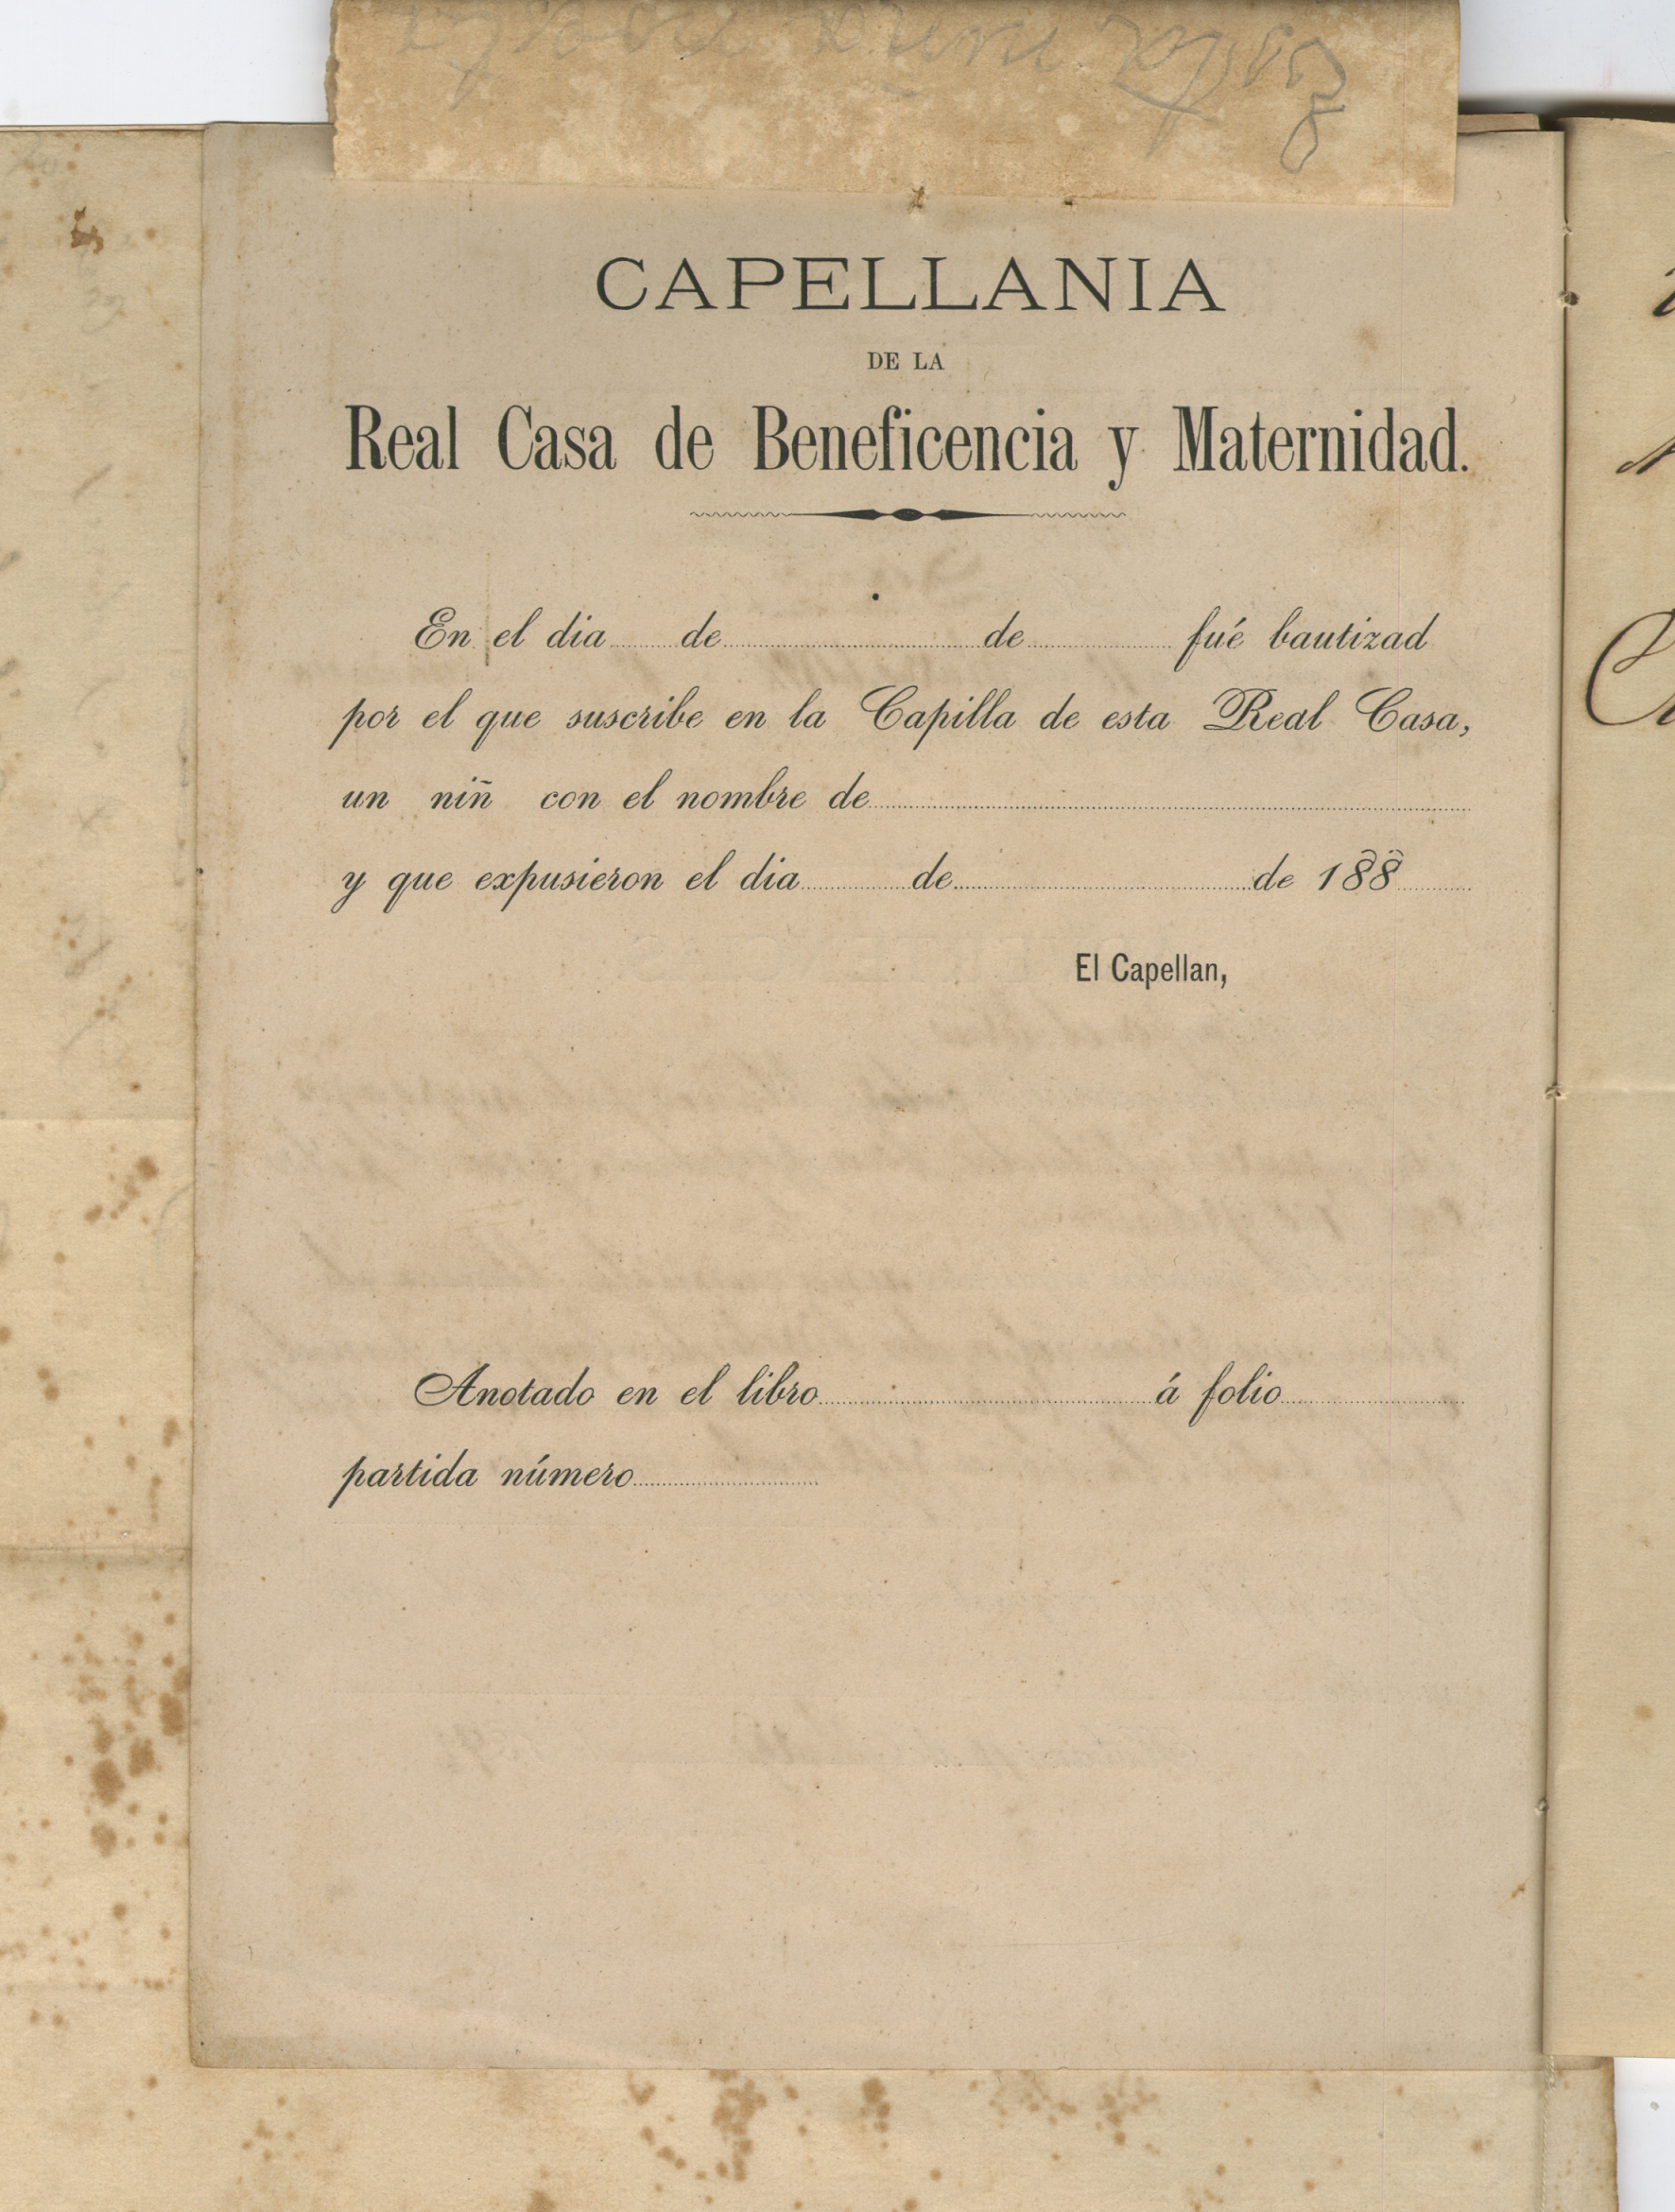 CAPELLANIA
DE LA
Real Casa de Beneficencia y Maternidad.
En el dia de de fué bautizad
por el que suscribe en la Capilla de esta Real Casa,
un niñ con el nombre de
y que expusieron el dia de de 188
El Capellan,
Anotado en el libro á folio
partida número